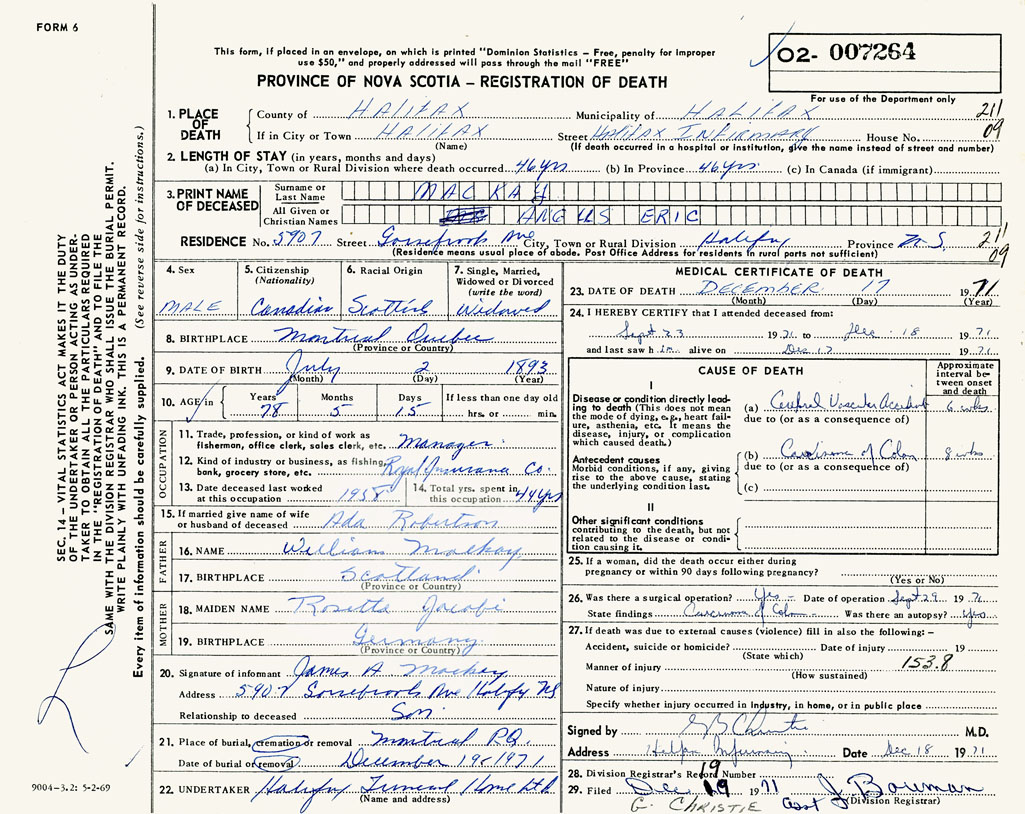 FORM 6
This form, if placed in an envelope, on which is printed "Dominion Statistics – Free, penalty for improper
use $50," and properly addressed will pass through the mail "FREE"
02- 007264
PROVINCE OF NOVA SCOTIA – REGISTRATION OF DEATH
For use of the Department only
1. PLACE OF DEATH
County of HALIFAX Municipality of HALIFAX 211
If in City or Town HALIFAX Street HALIFAX INFIRMARY House No. 09
(Name) (If death occurred in a hospital or institution, give the name instead of street and number)
2. LENGTH OF STAY (in years, months and days)
(a) In City, Town or Rural Division where death occurred 46 yrs (b) In Province 46 yrs. (c) In Canada (if immigrant)
3. PRINT NAME OF DECEASED
Surname or Last Name MACKAY
All Given or Christian Names ANGUS ERIC
RESIDENCE No. 5907 Street Gorsebrook Ave City, Town or Rural Division Halifax Province N.S. 211
(Residence means usual place of abode. Post Office Address for residents in rural parts not sufficient) 09
4. Sex MALE
5. Citizenship (Nationality) Canadian
6. Racial Origin Scottish
7. Single, Married, Widowed or Divorced (write the word) Widowed
8. BIRTHPLACE Montreal Quebec
(Province or Country)
9. DATE OF BIRTH July 2 1893
(Month) (Day) (Year)
10. AGE in Years 78 Months 5 Days 15 If less than one day old hrs. or min.
OCCUPATION
11. Trade, profession, or kind of work as
fisherman, office clerk, sales clerk, etc. Manager
12. Kind of industry or business, as fishing,
bank, grocery store, etc. Royal Insurance Co.
13. Date deceased last worked
at this occupation 1958
14. Total yrs. spent in
this occupation 44 yrs
15. If married give name of wife
or husband of deceased Ada Robertson
FATHER
16. NAME William Mackay
17. BIRTHPLACE Scotland
(Province or Country)
MOTHER
18. MAIDEN NAME Rosetta Jacobi
19. BIRTHPLACE Germany
(Province or Country)
20. Signature of informant James A Mackay
Address 5907 Gorsebrook Ave Halifax NS
Relationship to deceased Son
21. Place of burial, cremation or removal Montreal P.Q.
Date of burial or removal December 19 1971
22. UNDERTAKER Halifax Funeral Home Ltd
(Name and address)
MEDICAL CERTIFICATE OF DEATH
23. DATE OF DEATH DECEMBER 17 1971
(Month) (Day) (Year)
24. I HEREBY CERTIFY that I attended deceased from:
Sept 23 1971 to Dec. 18 1971
and last saw him alive on Dec 17 1971
CAUSE OF DEATH
Approximate interval between onset and death
I
Disease or condition directly leading
to death (This does not mean
the mode of dying, e.g., heart failure,
asthenia, etc. It means the
disease, injury, or complication
which caused death.)
(a) Cerebral Vascular Accident 6 wks.
due to (or as a consequence of)
Antecedent causes
Morbid conditions, if any, giving
rise to the above cause, stating
the underlying condition last.
(b) Carcinoma of Colon 8 wks.
due to (or as a consequence of)
(c)
II
Other significant conditions
contributing to the death, but not
related to the disease or condition
causing it.
25. If a woman, did the death occur either during
pregnancy or within 90 days following pregnancy?
(Yes or No)
26. Was there a surgical operation? Yes Date of operation Sept 29 1971
State findings Carcinoma of Colon Was there an autopsy? yes
27. If death was due to external causes (violence) fill in also the following: –
Accident, suicide or homicide? Date of injury 19
(State which)
Manner of injury 153.8
(How sustained)
Nature of injury
Specify whether injury occurred in industry, in home, or in public place
Signed by G B Christie M.D.
Address Halifax Infirmary Date Dec 18 1971
28. Division Registrar's Record Number 19
29. Filed Dec 19 1971 asst J. Bowman
G. CHRISTIE (Division Registrar)
SEC. 14 – VITAL STATISTICS ACT MAKES IT THE DUTY
OF THE UNDERTAKER OR PERSON ACTING AS UNDERTAKER
TO OBTAIN ALL THE PARTICULARS REQUIRED
IN THE "REGISTRATION OF DEATH" AND TO FILE THE
SAME WITH THE DIVISION REGISTRAR WHO SHALL ISSUE THE BURIAL PERMIT.
WRITE PLAINLY WITH UNFADING INK. THIS IS A PERMANENT RECORD.
Every item of information should be carefully supplied. (See reverse side for instructions.)
9004-3.2: 5-2-69